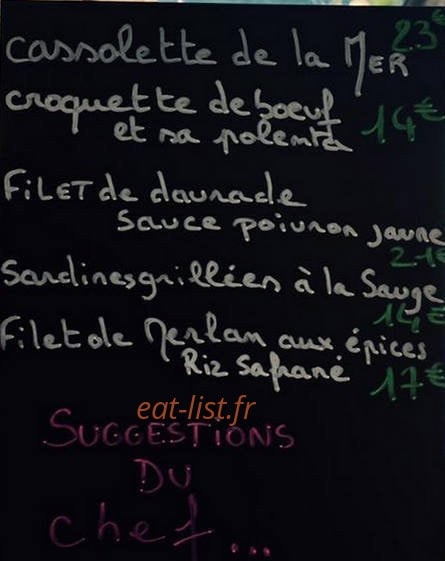 23€
cassolette de la MER
croquette de boeuf
et sa polenta 14€
FiLET de daurade
sauce poivron jaune
21€
Sardines grillées à la Sauge
14€
Filet de Merlan aux épices
Riz Safrané 17€
eat-list.fr
SUGGESTIONS
DU
chef...